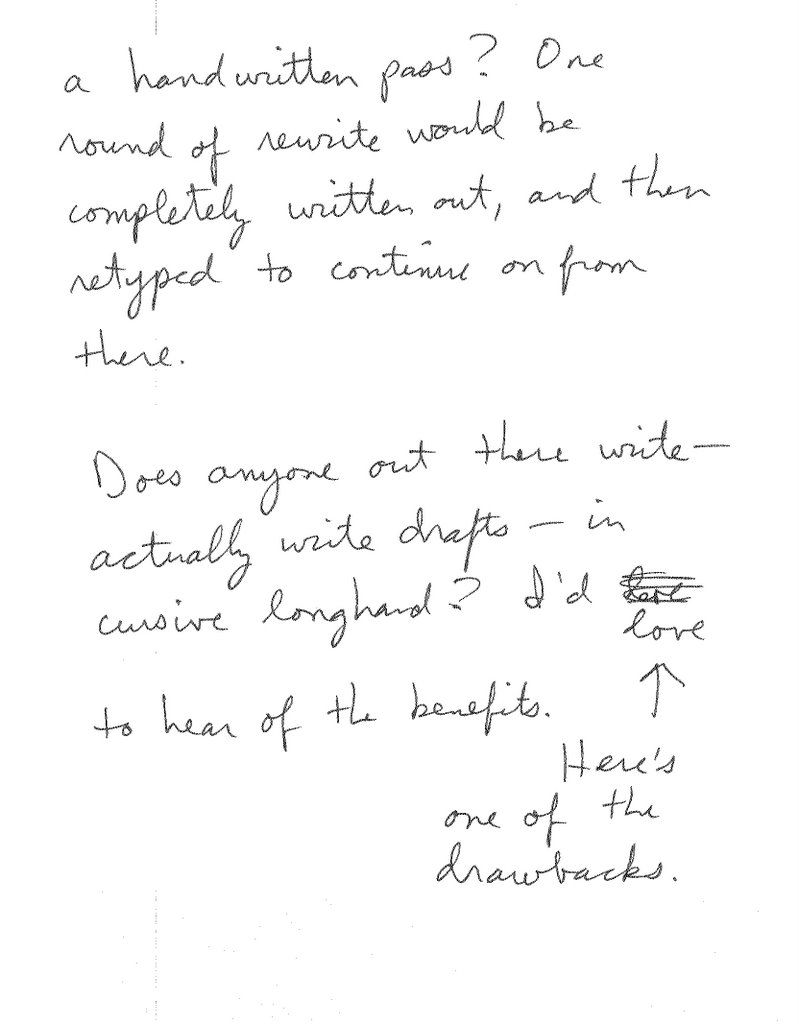 a handwritten pass? One
round of rewrite would be
completely written out, and then
retyped to continue on from
there.
Does anyone out there write—
actually write drafts — in
cursive longhand? I'd
love
to hear of the benefits.
↑
Here's
one of the
drawbacks.